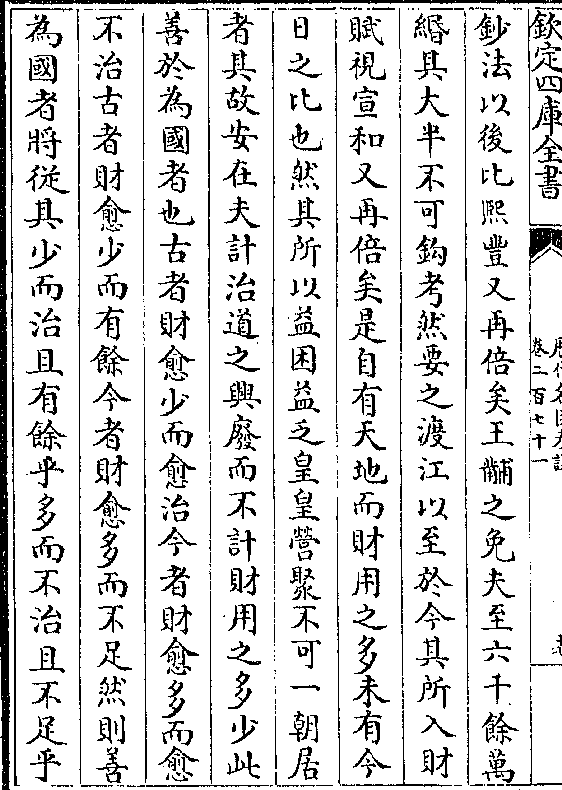 欽定四庫全書
卷二百七十一
鈔法以後比熈豐又再倍矣王黼之免夫至六千餘萬
緡其大半不可鈎考然要之渡江以至於今其所入財
賦視宣和又再倍矣是自有天地而財用之多未有今
日之比也然其所以益困益乏皇皇營聚不可一朝居
者其故安在夫計治道之興廢而不計財用之多少此
善於為國者也古者財愈少而愈治今者財愈多而愈
不治古者財愈少而有餘今者財愈多而不足然則善
為國者將従其少而治且有餘乎多而不治且不足乎